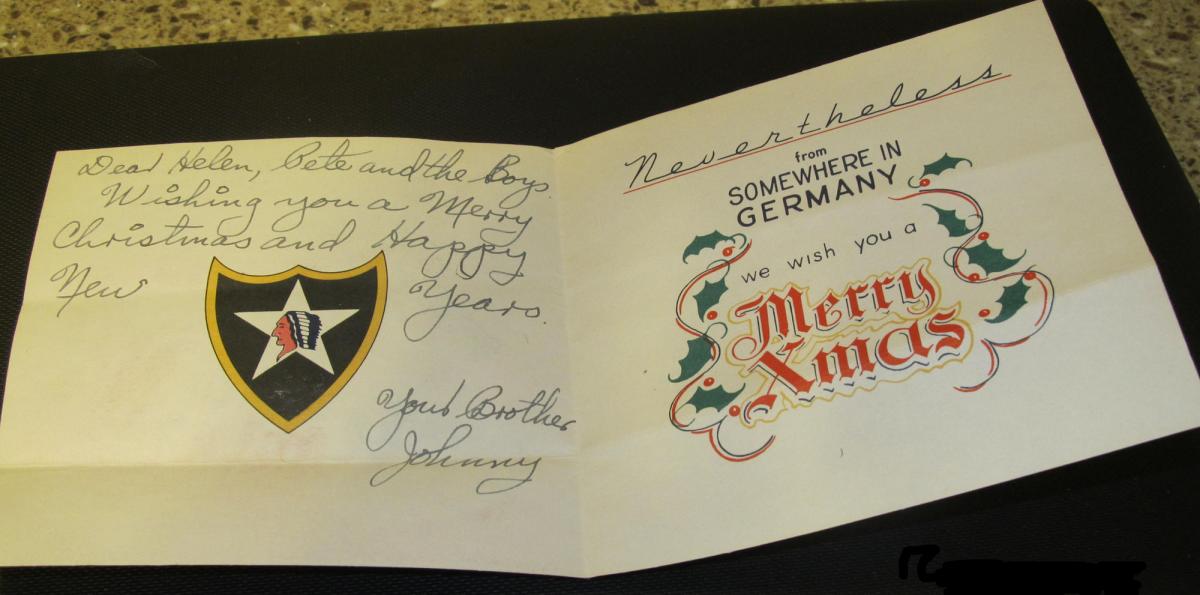 Dear Helen, Pete and the Boys
Wishing you a Merry
Christmas and Happy
New Years.
Your Brother
Johnny
Nevertheless
from
SOMEWHERE IN
GERMANY
we wish you a
Merry
Xmas